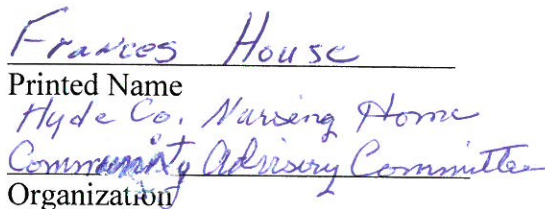 Frances House
Printed Name
Hyde Co. Nursing Home
Community Advisory Committee
Organization